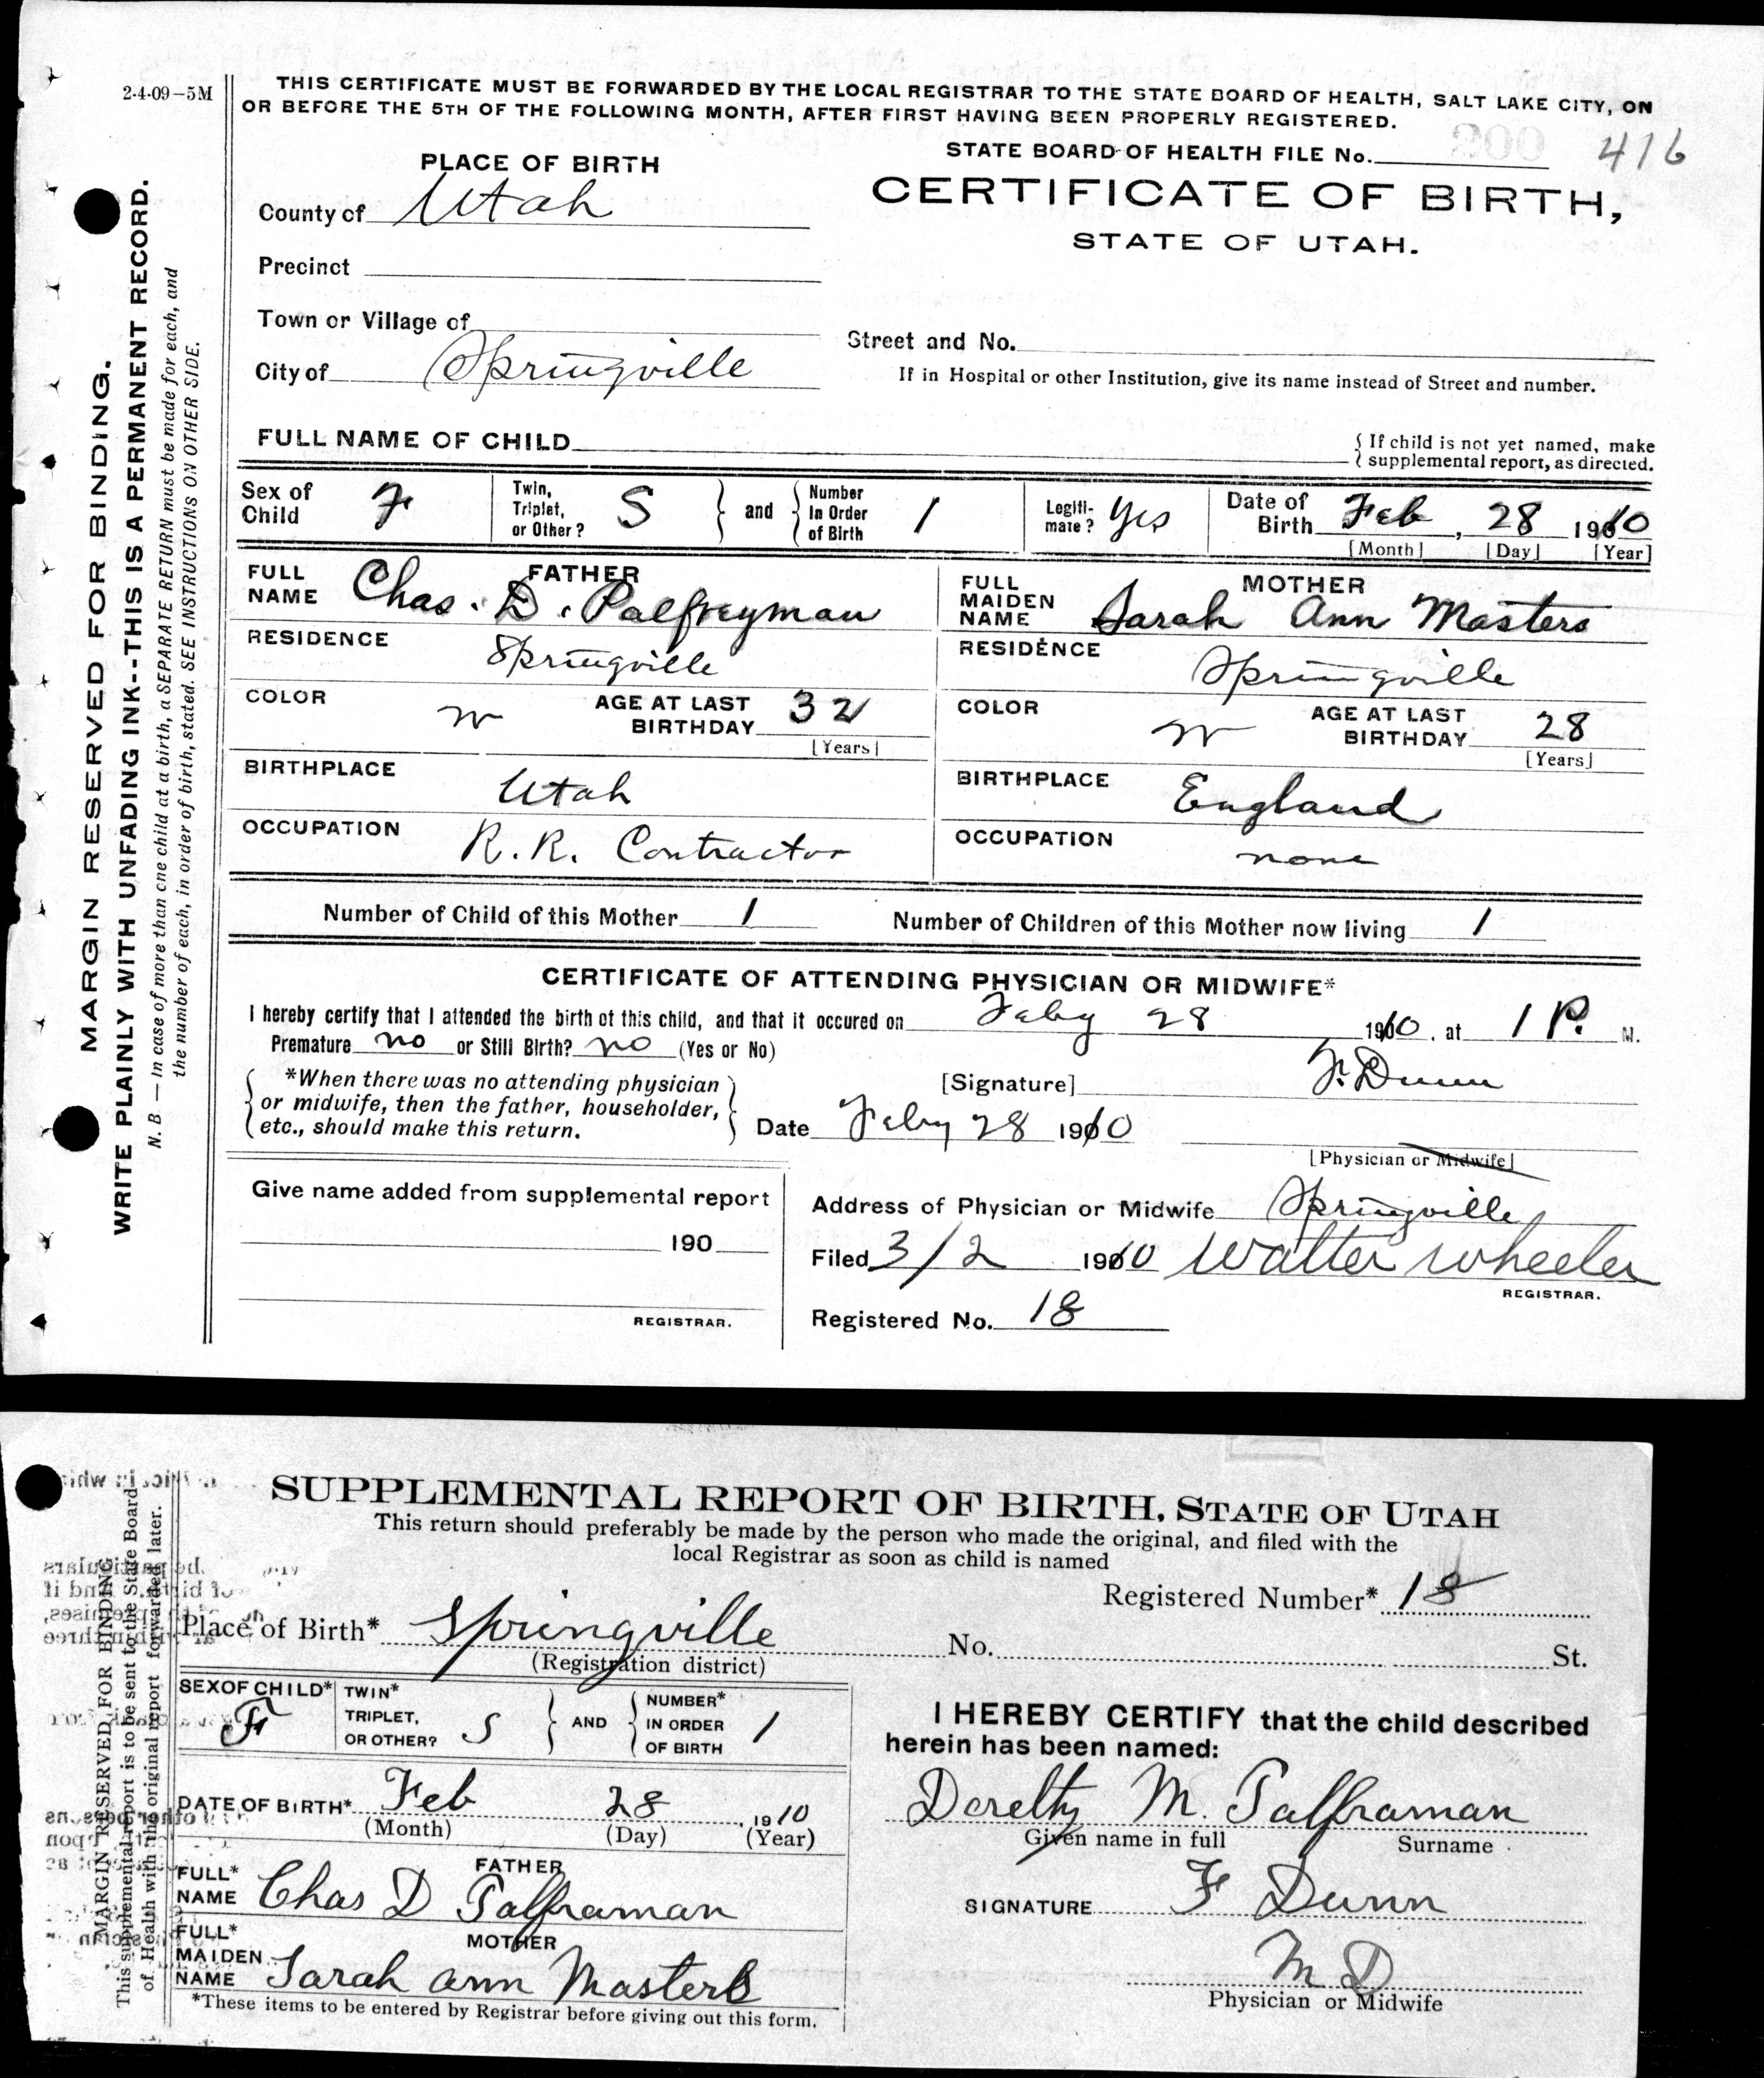 2-4-09-5M
THIS CERTIFICATE MUST BE FORWARDED BY THE LOCAL REGISTRAR TO THE STATE BOARD OF HEALTH, SALT LAKE CITY, ON
OR BEFORE THE 5TH OF THE FOLLOWING MONTH, AFTER FIRST HAVING BEEN PROPERLY REGISTERED.
STATE BOARD OF HEALTH FILE No. 200 416
PLACE OF BIRTH
CERTIFICATE OF BIRTH,
STATE OF UTAH.
County of Utah
Precinct
Town or Village of
Street and No.
City of Springville
If in Hospital or other Institution, give its name instead of Street and number.
FULL NAME OF CHILD
{ If child is not yet named, make
{ supplemental report, as directed.
Sex of Child F
Twin, Triplet, or Other? S } and { Number In Order of Birth 1
Legiti-mate? Yes
Date of Birth Feb, 28 1910
[Month] [Day] [Year]
FATHER
FULL NAME Chas. D. Palfreyman
MOTHER
FULL MAIDEN NAME Sarah Ann Masters
RESIDENCE Springville
RESIDENCE Springville
COLOR W AGE AT LAST BIRTHDAY 32 [Years]
COLOR W AGE AT LAST BIRTHDAY 28 [Years]
BIRTHPLACE Utah
BIRTHPLACE England
OCCUPATION R.R. Contractor
OCCUPATION none
Number of Child of this Mother 1 Number of Children of this Mother now living 1
CERTIFICATE OF ATTENDING PHYSICIAN OR MIDWIFE*
I hereby certify that I attended the birth of this child, and that it occured on Feby 28 1910, at 1 P. M.
Premature no or Still Birth? no (Yes or No)
*When there was no attending physician
or midwife, then the father, householder,
etc., should make this return.
[Signature] F. Dunn
Date Feby 28 1910
[Physician or Midwife]
Give name added from supplemental report
190
REGISTRAR.
Address of Physician or Midwife Springville
Filed 3/2 1910 Walter Wheeler
REGISTRAR.
Registered No. 18
MARGIN RESERVED FOR BINDING.
WRITE PLAINLY WITH UNFADING INK--THIS IS A PERMANENT RECORD.
N. B — In case of more than one child at a birth, a SEPARATE RETURN must be made for each, and
the number of each, in order of birth, stated. SEE INSTRUCTIONS ON OTHER SIDE.
SUPPLEMENTAL REPORT OF BIRTH, STATE OF UTAH
This return should preferably be made by the person who made the original, and filed with the
local Registrar as soon as child is named
Registered Number* 18
Place of Birth* Springville No. St.
(Registration district)
SEX OF CHILD* F
TWIN* TRIPLET, OR OTHER? S } AND { NUMBER* IN ORDER OF BIRTH 1
DATE OF BIRTH* Feb 28, 1910
(Month) (Day) (Year)
FATHER
FULL* NAME Chas D Palframan
MOTHER
FULL* MAIDEN NAME Sarah ann Masters
*These items to be entered by Registrar before giving out this form.
I HEREBY CERTIFY that the child described
herein has been named:
Dorelthy M. Palframan
Given name in full Surname
SIGNATURE F Dunn
M D
Physician or Midwife
MARGIN RESERVED FOR BINDING
This supplemental report is to be sent to the State Board
of Health with the original report forwarded later.